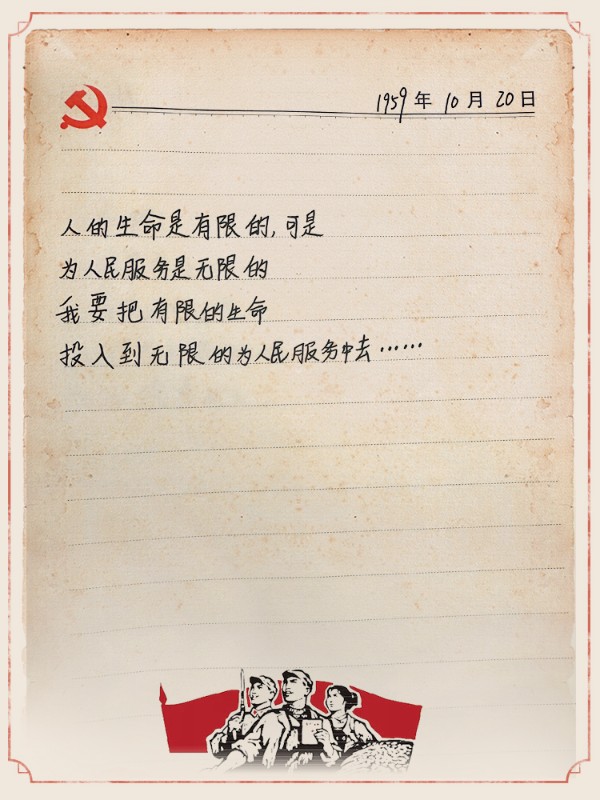 1959年10月20日
人的生命是有限的,可是
为人民服务是无限的
我要把有限的生命
投入到无限的为人民服务中去……